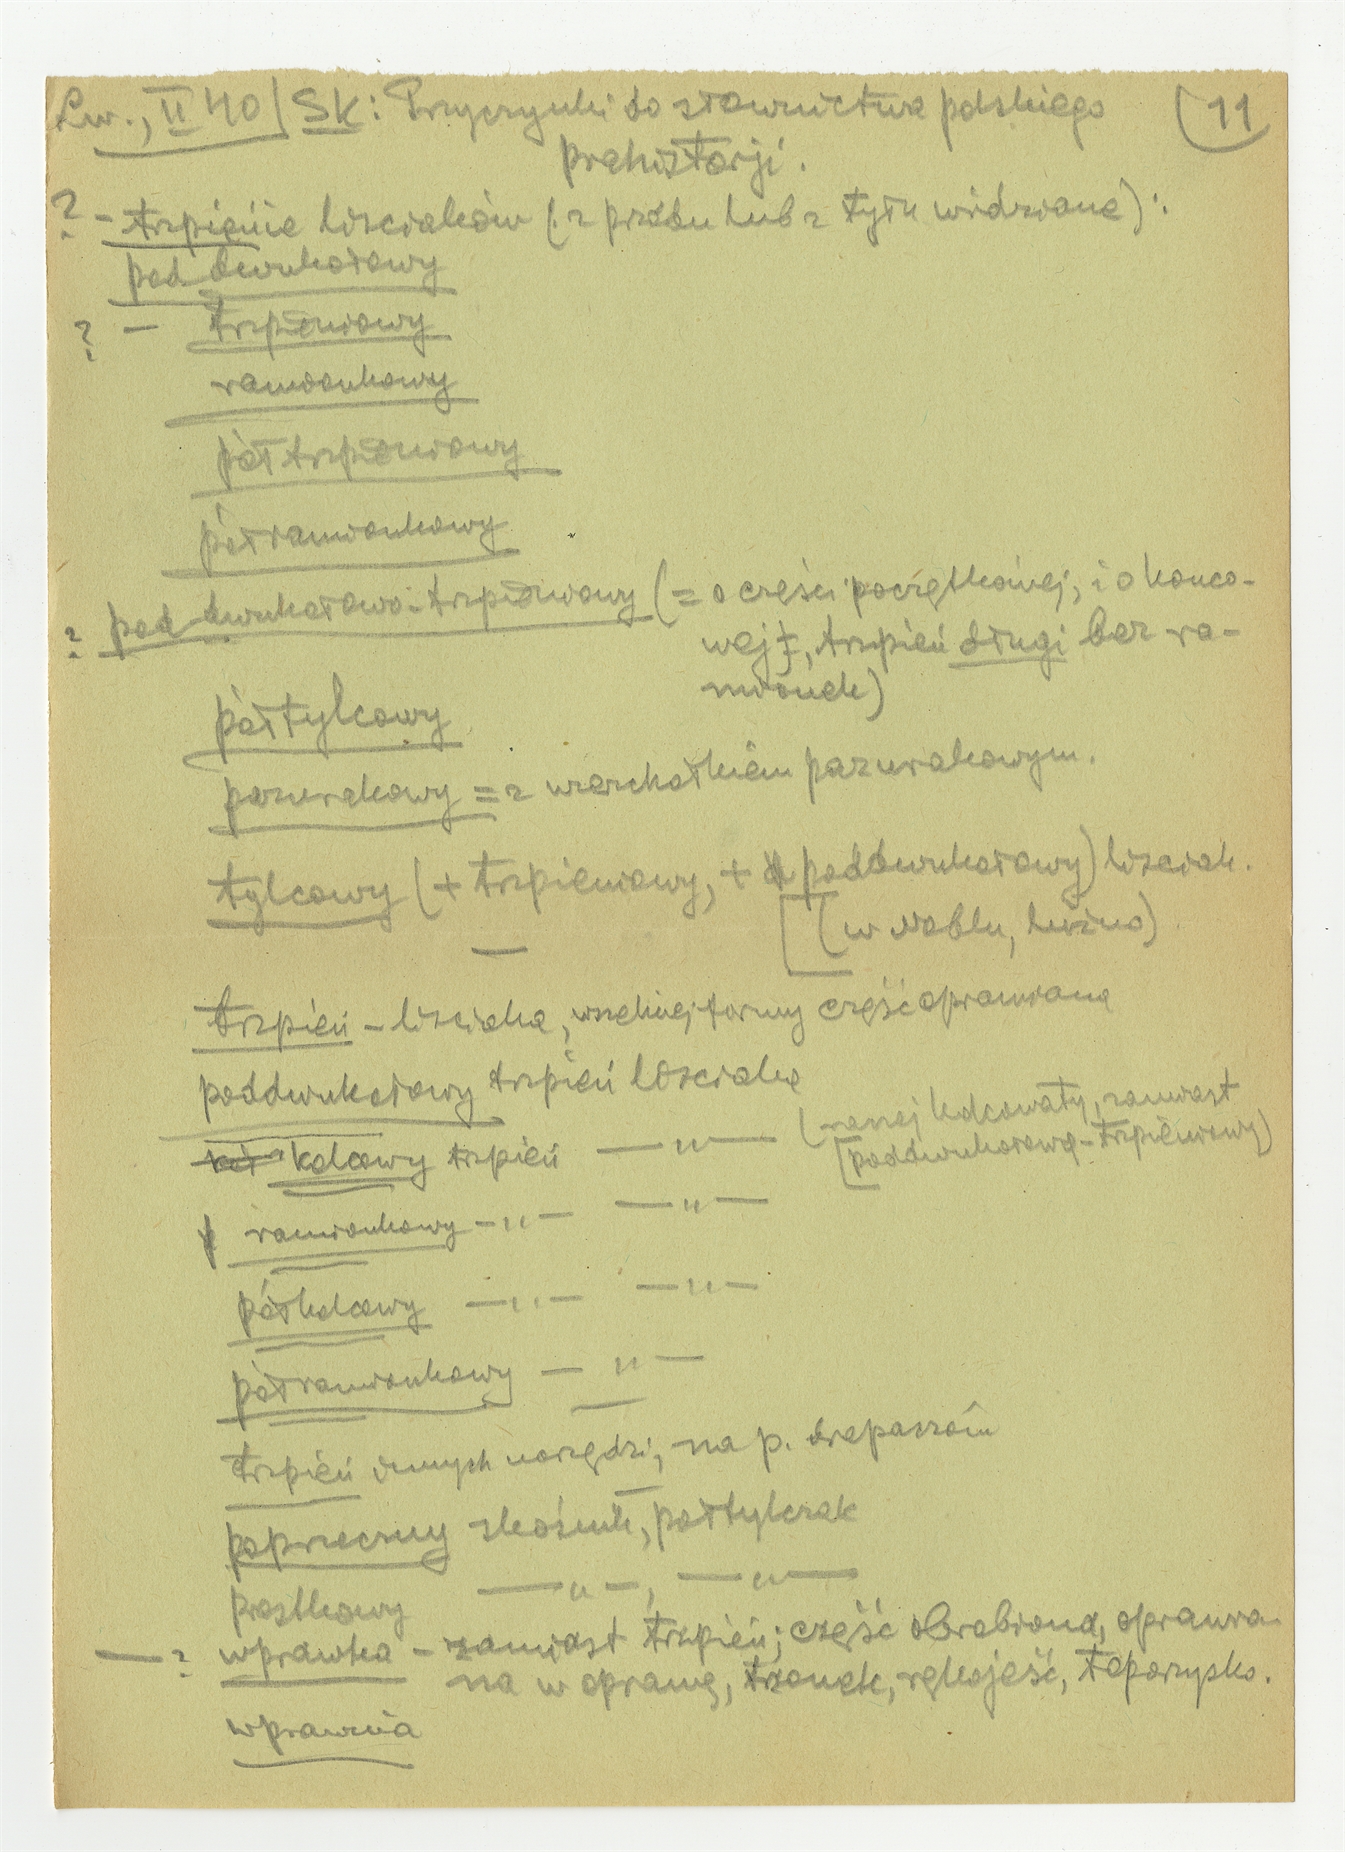 Lw., II 40 / SK: Przyczynki do słownictwa polskiego (11
prehistorji.
? - trzpienie liściaków (z przodu lub z tyłu widziane):
poddwukątowy
? — trzpieniowy
ramionkowy
półtrzpieniowy
półramionkowy
? poddwukątowo-trzpieniowy (= o części początkowej, i o końco-
wej ‡, trzpień długi bez ra-
mionek)
półtylcowy
pazurakowy = z wierzchołkiem pazurakowym.
tylcowy (+ trzpieniowy, + poddwukątowy) liściak.
— [(w Noblu, luźno)
trzpień - liściaka, wszelkiej formy część oprawiana
poddwukątowy trzpień liściaka
kolcowy trzpień — „ — (raczej kolcowaty, zamiast
[poddwukątowo-trzpieniowy)
ramionkowy - „ - — „ —
półkolcowy — „ — — „ —
półramionkowy — „ —
—
trzpień innych narzędzi, na p. drapaczów
—
poprzeczny skośnik, półtylczak
prostkowy — „ —, — „ —
— ? wprawka - zamiast trzpień; część obrabiona, oprawia-
na w oprawę, trzonek, rękojeść, toporzysko.
wprawnia